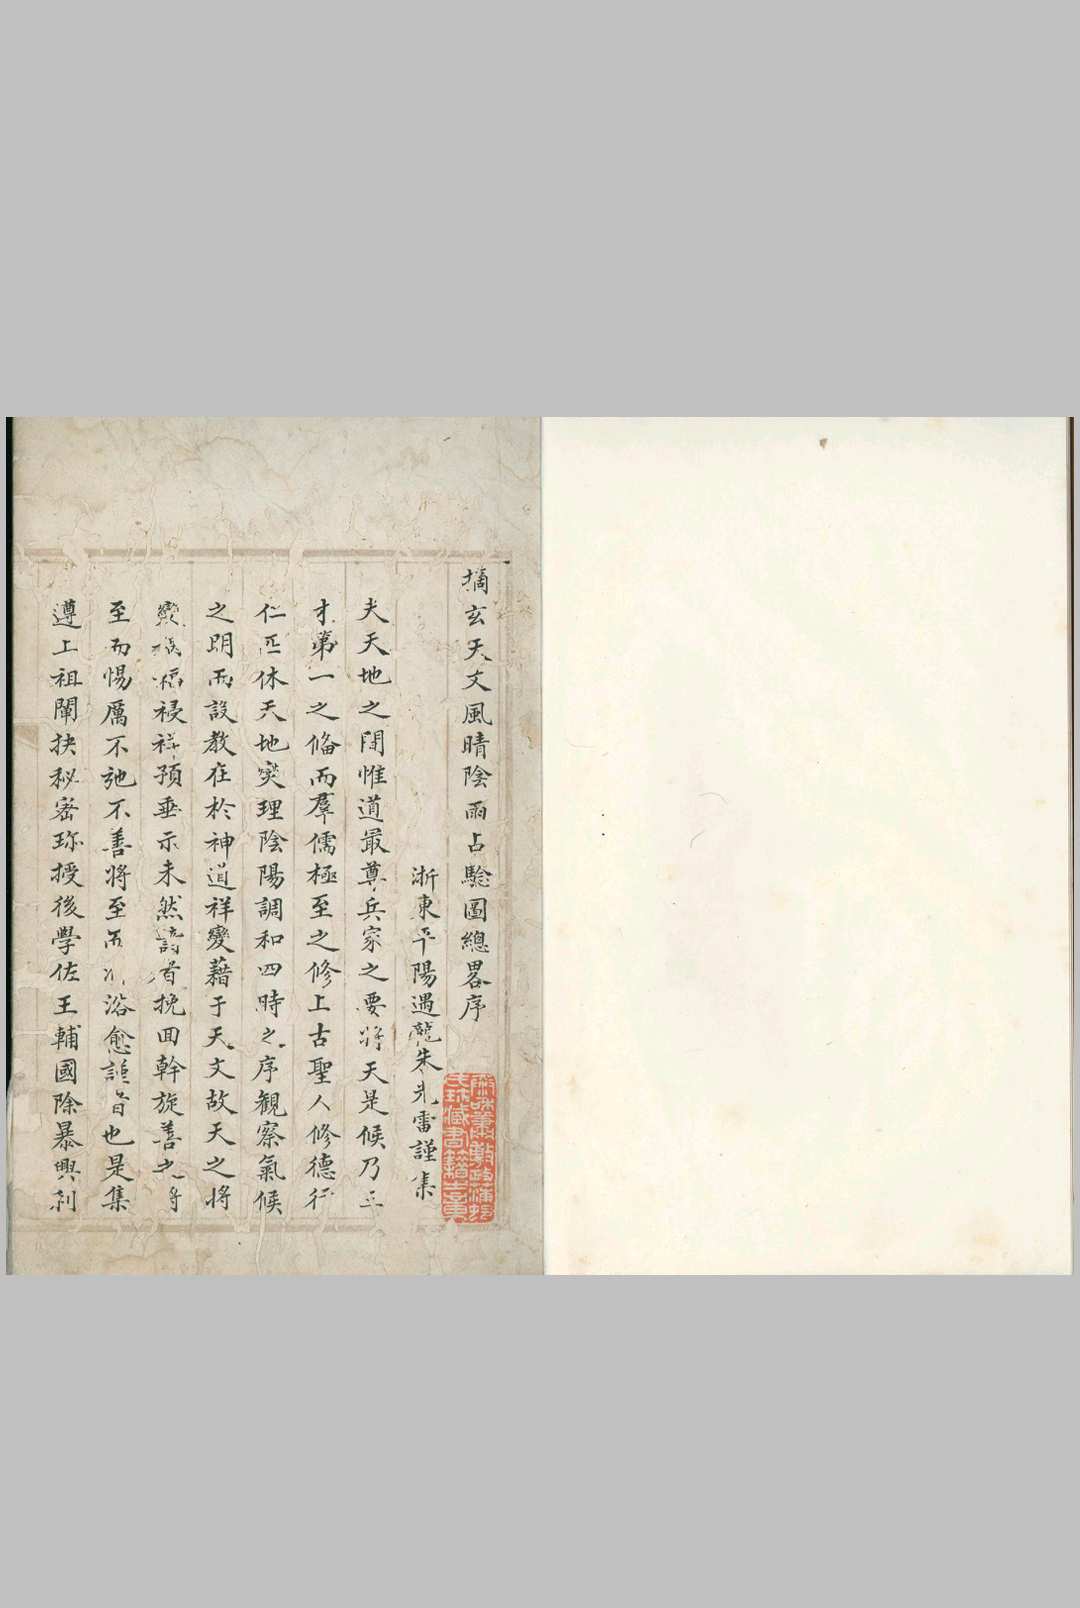 摘玄天文風晴陰雨占驗圖總畧序
浙東平陽遇龍朱光雷謹集
夫天地之間惟道最尊兵家之要將天是候乃三
才第一之偹而羣儒極至之修上古聖人修德行
仁匹休天地爕理陰陽調和四時之序觀察氣候
之明而設教在於神道祥變藉于天文故天之將
變禍福祲祥預垂示未然 者挽回幹旋善之將
至而惕厲不弛不善將至而 浴愈 者也是集
遵上祖闡抉秘密珎授後學佐王輔國除暴興利